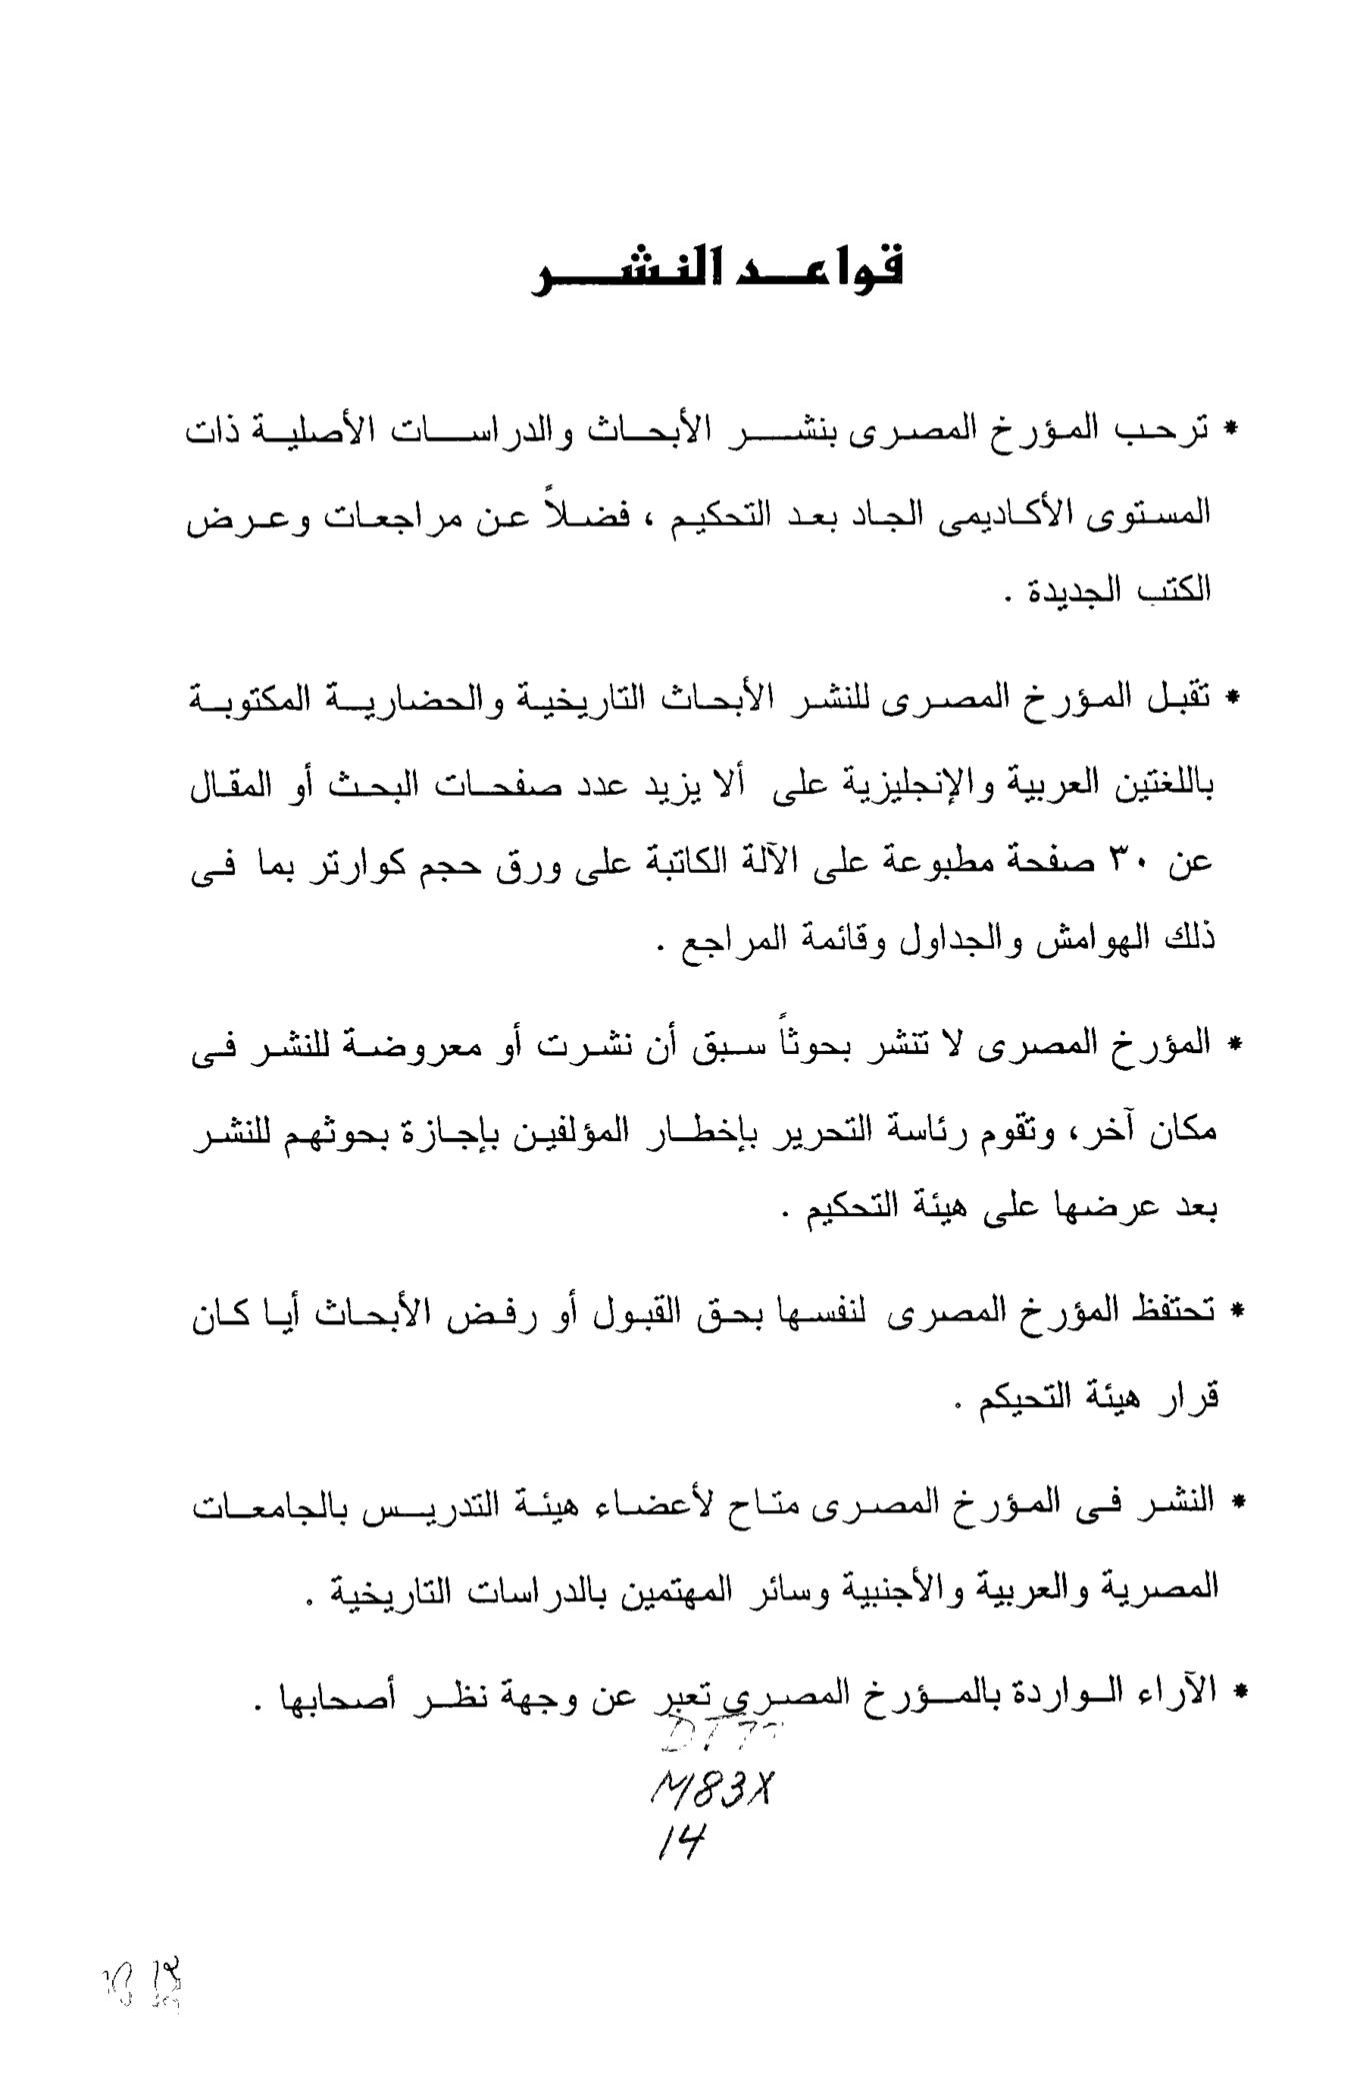 قواعد النشر
* ترحب المؤرخ المصرى بنشر الأبحاث والدراسات الأصلية ذات
المستوى الأكاديمى الجاد بعد التحكيم ، فضلاً عن مراجعات وعرض
الكتب الجديدة .
* تقبل المؤرخ المصرى للنشر الأبحاث التاريخية والحضارية المكتوبة
باللغتين العربية والإنجليزية على ألا يزيد عدد صفحات البحث أو المقال
عن ٣٠ صفحة مطبوعة على الآلة الكاتبة على ورق حجم كوارتر بما فى
ذلك الهوامش والجداول وقائمة المراجع .
* المؤرخ المصرى لا تنشر بحوثاً سبق أن نشرت أو معروضة للنشر فى
مكان آخر، وتقوم رئاسة التحرير بإخطار المؤلفين بإجازة بحوثهم للنشر
بعد عرضها على هيئة التحكيم .
* تحتفظ المؤرخ المصرى لنفسها بحق القبول أو رفض الأبحاث أيا كان
قرار هيئة التحيكم .
* النشر فى المؤرخ المصرى متاح لأعضاء هيئة التدريس بالجامعات
المصرية والعربية والأجنبية وسائر المهتمين بالدراسات التاريخية .
* الآراء الواردة بالمؤرخ المصرى تعبر عن وجهة نظر أصحابها .
M83X
14